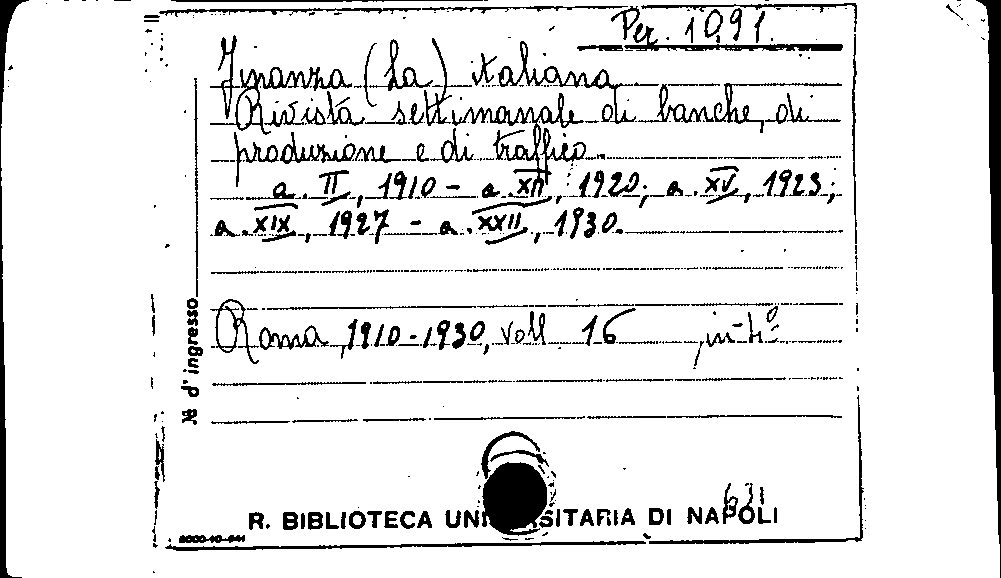 Per. 1091.
Finanza (La) italiana
Rivista settimanale di banche, di
produzione e di traffico.
a. II, 1910 - a. XII, 1920; a. XV, 1923;
a. XIX, 1927 - a. XXII, 1930.
Roma, 1910-1930, voll. 16 , in-4º
N.º d'ingresso
631
R. BIBLIOTECA UNIVERSITARIA DI NAPOLI